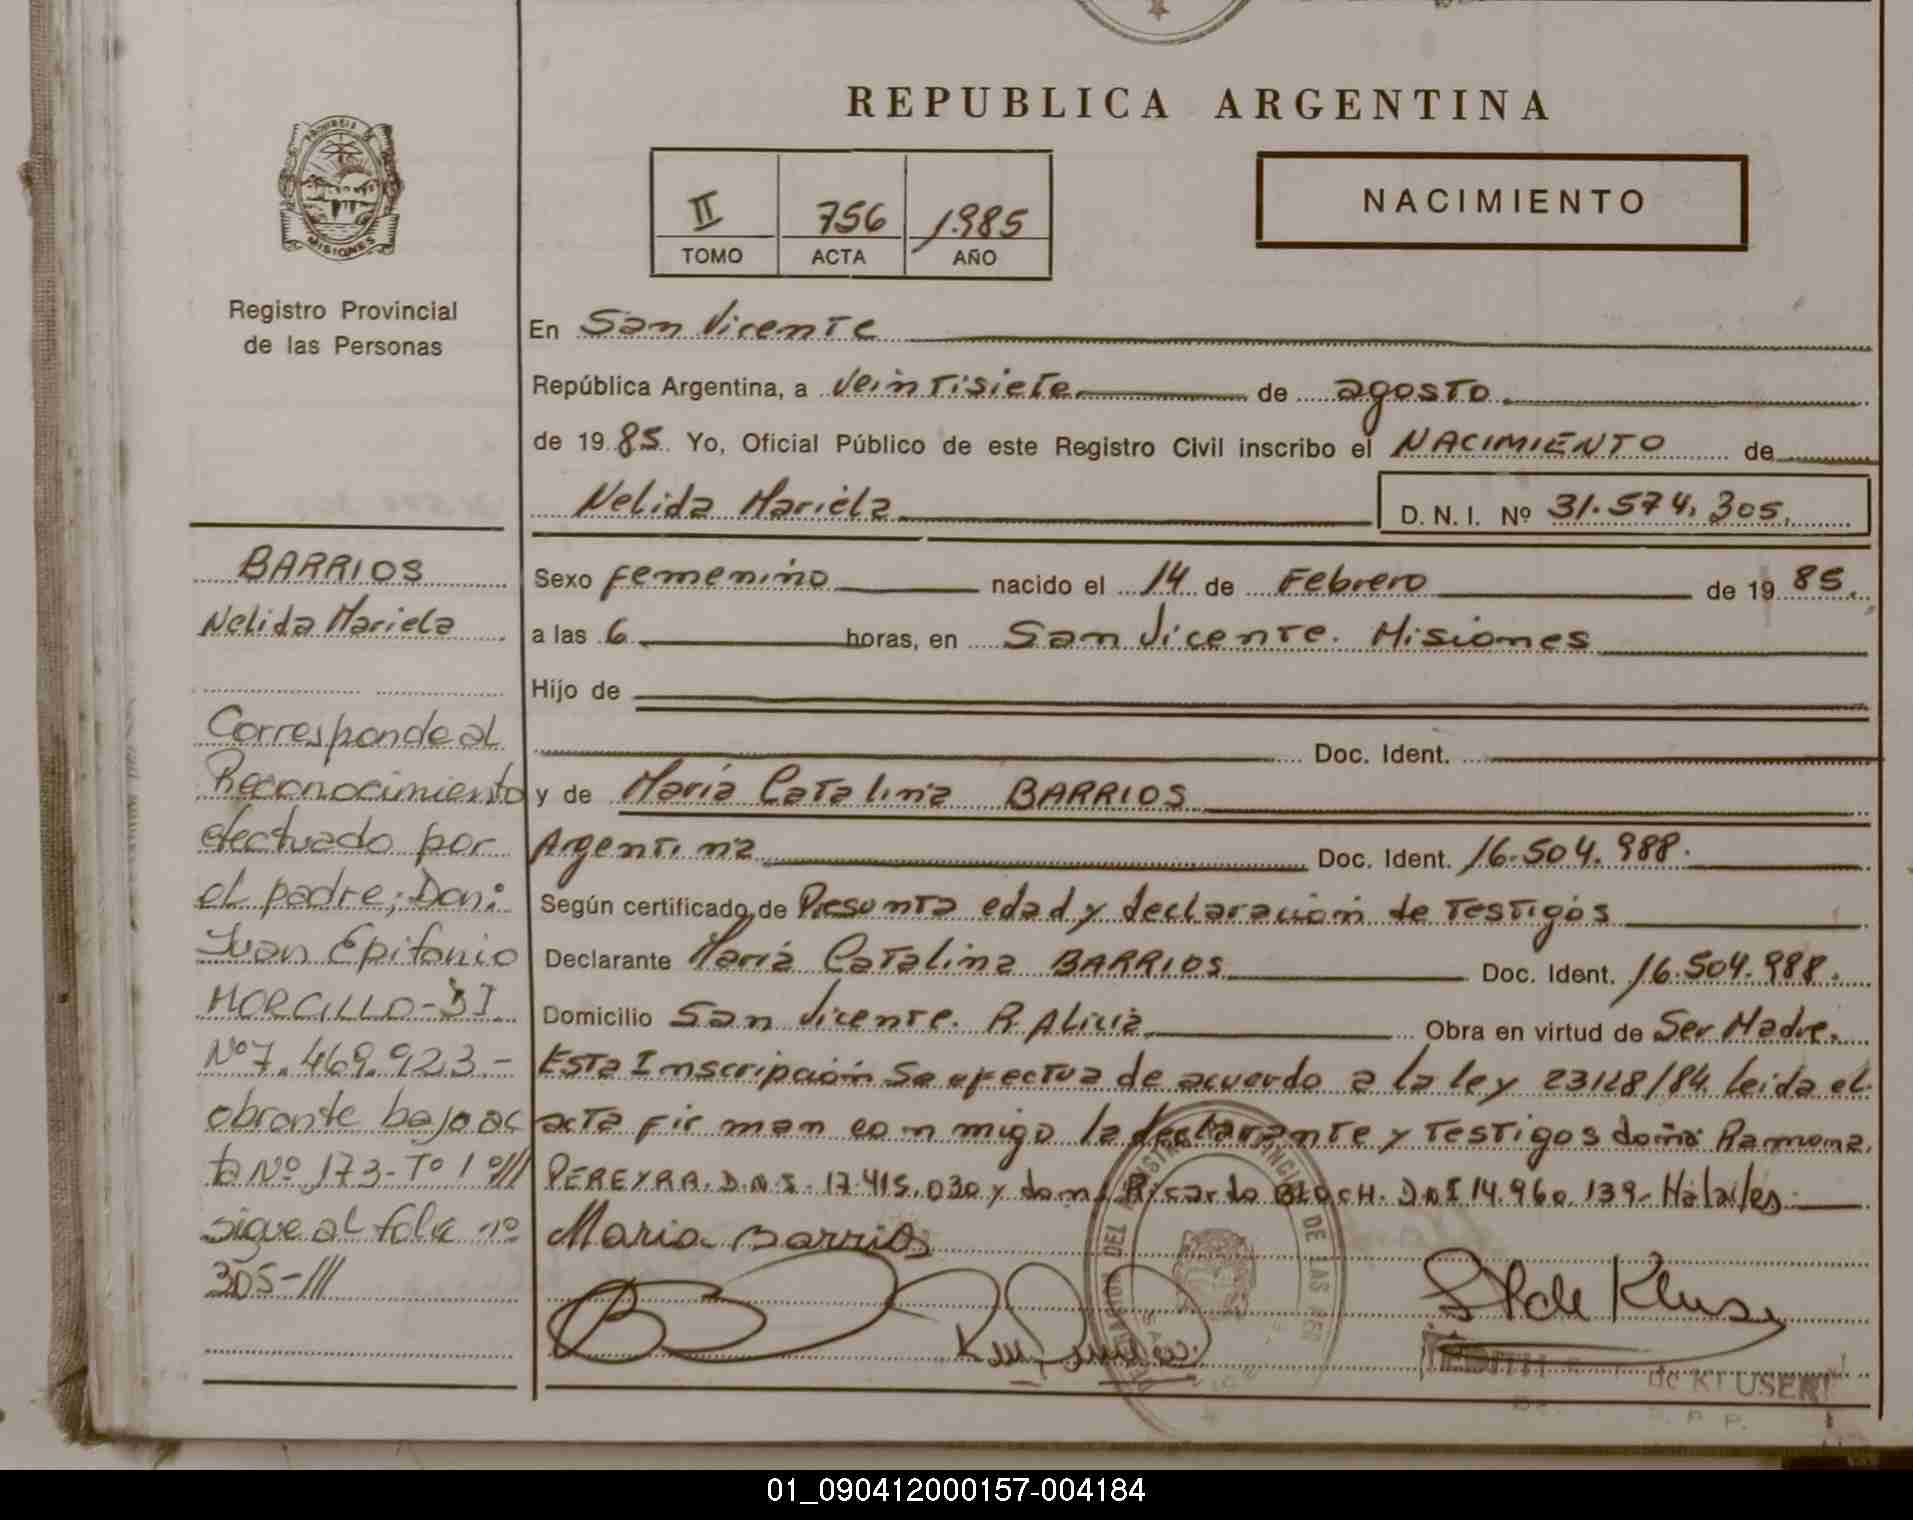 REPUBLICA ARGENTINA
PROVINCIA DE
MISIONES
II 756 1.985
TOMO ACTA AÑO
NACIMIENTO
Registro Provincial
de las Personas
En San Vicente
República Argentina, a veintisiete de agosto
de 19 85. Yo, Oficial Público de este Registro Civil inscribo el NACIMIENTO de
Nelida Mariela D. N. I. Nº 31.574.305.
Sexo femenino nacido el 14 de Febrero de 19 85.
a las 6 horas, en San Vicente. Misiones
Hijo de
Doc. Ident.
y de María Catalina BARRIOS
Argentina Doc. Ident. 16.504.988.
Según certificado de Presunta edad y declaración de Testigos
Declarante María Catalina BARRIOS Doc. Ident. 16.504.988.
Domicilio San Vicente. R. Alicia Obra en virtud de Ser Madre.
Esta Inscripción se efectua de acuerdo a la ley 23128/84. leida el
acta firman conmigo la declarante y Testigos doña Ramona
PEREYRA. D.N.I. 17.415.030 y don Ricardo BLOCH. DNI 14.960.139-
Maria Barrios
de KLUSENER
BARRIOS
Nelida Mariela
Corresponde al
Reconocimiento
efectuado por
el padre; Don:
Juan Epifanio
MORCILLO-DI
Nº 7.469.923-
obrante bajo ac
ta Nº 173-Tº 1º///
sigue al folio nº
305-///
01_090412000157-004184